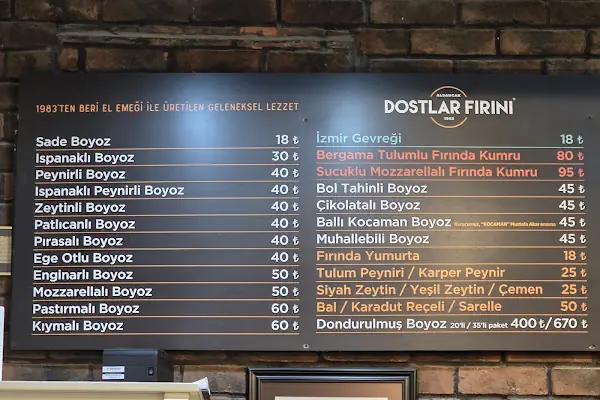 1983'TEN BERİ EL EMEĞİ İLE ÜRETİLEN GELENEKSEL LEZZET
Sade Boyoz 18 ₺
Ispanaklı Boyoz 30 ₺
Peynirli Boyoz 40 ₺
Ispanaklı Peynirli Boyoz 40 ₺
Zeytinli Boyoz 40 ₺
Patlıcanlı Boyoz 40 ₺
Pırasalı Boyoz 40 ₺
Ege Otlu Boyoz 40 ₺
Enginarlı Boyoz 50 ₺
Mozzarellalı Boyoz 50 ₺
Pastırmalı Boyoz 60 ₺
Kıymalı Boyoz 60 ₺
ALSANCAK
DOSTLAR FIRINI
1983
İzmir Gevreği 18 ₺
Bergama Tulumlu Fırında Kumru 80 ₺
Sucuklu Mozzarellalı Fırında Kumru 95 ₺
Bol Tahinli Boyoz 45 ₺
Çikolatalı Boyoz 45 ₺
Ballı Kocaman Boyoz Kurucumuz, "KOCAMAN" Mustafa Akar anısına 45 ₺
Muhallebili Boyoz 45 ₺
Fırında Yumurta 18 ₺
Tulum Peyniri / Karper Peynir 25 ₺
Siyah Zeytin / Yeşil Zeytin / Çemen 25 ₺
Bal / Karadut Reçeli / Sarelle 50 ₺
Dondurulmuş Boyoz 20'li / 35'li paket 400 ₺/ 670 ₺